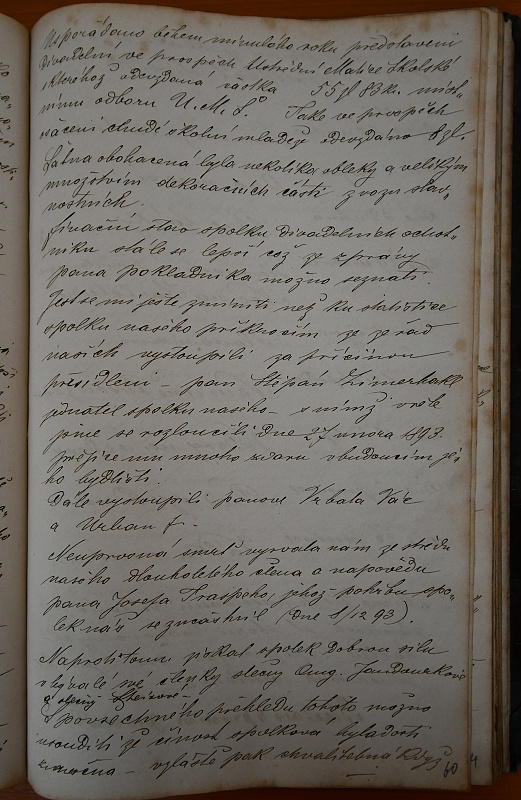 Uspořádáno během minulého roku představení
divadelní ve prospěch Ústřední Matice Školské
kteréhož odevzdaná částka 55 zl 83 k. míst„
nímu odboru Ú. M. Š. Také ve prospěch
ošacení chudé školní mládeže odevzdáno 8 zl.
Šatna obohacená byla několika obleky a velikým
množstvím dekoračních částí z vozu slav„
nostních.
Finační stav spolku divadelních ochot„
níku stále se lepší což ze zprávy
pana pokladníka možno seznati.
Jest se mi ještě zmíniti než ku statistice
spolku našého přikročím že ze řad
našich vystoupili za příčinou
přesídlení – pan Štěpán
jednatel spolku našého – s nímž
jsme se rozloučili dne 27 února 1893.
přejíce mu mnoho zdaru v budoucím je„
ho bydlišti.
Dále vystoupili panové Vrbata Vác
a Urban F.
Neúprosná smrť vyrvala nám ze středu
našého dlouholetého člena a nápovědu
pana Josefa Traspeho, jehož pohřbu spo„
lek náš se zúčastnil (dne 8/12 93).
Naproti tomu získal spolek dobrou sílu
v bývalé své členky slečny Aug. Jandourkové
a slečny
S povšechného přehledu tohoto možno
souditi že činost spolková byla dosti
– zvláště pak chvalitebná když
60